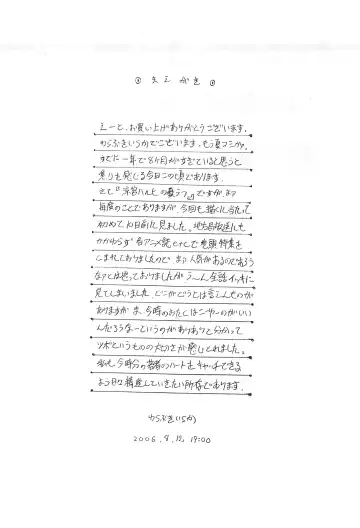 えーと、お買い上げありがとうございます。
わらぶきいちかでございます。もう夏コミか。
すでに一年で8ヶ月がすぎていると思うと
焦りを感じる今日この頃であります。
さて「涼宮ハルヒの憂うつ」ですが、まァ
毎度のことでありますが、今回も描くに当たって
初めて10日前に見ました。地方局放送にも
かかわらず各アニメ誌とかで巻頭特集を
くまれておりましたので、まァ人気があるのであろう
なァとは思っておりましたが、うーん全話イッキに
見てしまいました。どこがどうとは言えんものが
ありますが、ま、今時のおたくはこーゆーのがいい
んだろうなーというのがありありと分かって
ツボというものの大切さが感じとれました。
私も今時分の若者のハートをキャッチできる
よう日々精進していきたい所存であります。
わらぶきいちか
2006. 8.12, 19:00